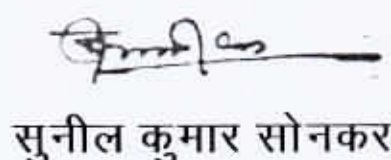 सुनील कुमार सोनकर